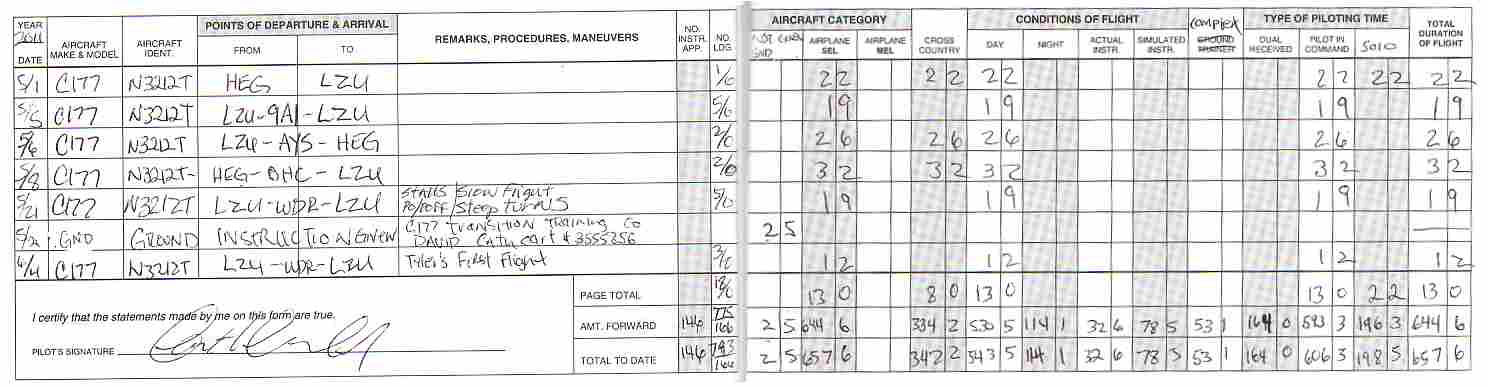 YEAR 2011 POINTS OF DEPARTURE & ARRIVAL NO. INSTR. APP. NO. LDG. AIRCRAFT CATEGORY CONDITIONS OF FLIGHT TYPE OF PILOTING TIME TOTAL DURATION OF FLIGHT
DATE AIRCRAFT MAKE & MODEL AIRCRAFT IDENT. FROM TO REMARKS, PROCEDURES, MANEUVERS GND AIRPLANE SEL AIRPLANE MEL CROSS COUNTRY DAY NIGHT ACTUAL INSTR. SIMULATED INSTR. GROUND TRAINER DUAL RECEIVED PILOT IN COMMAND SOLO
5/1 C177 N3212T HEG LZU 1/0 2 2 2 2 2 2 2 2 2 2 2 2
5/5 C177 N3212T LZU-9A1-LZU 5/0 1 9 1 9 1 9 1 9
5/6 C177 N3212T LZU-AYS-HEG 2/0 2 6 2 6 2 6 2 6 2 6
5/8 C177 N3212T- HEG-OHC-LZU 2/0 3 2 3 2 3 2 3 2 3 2
5/21 C177 N3212T LZU-WDR-LZU Stalls/Slow Flight 5/0 1 9 1 9 1 9 1 9
PO/POFF/Steep turns
5/21 GND GROUND INSTRUCTION GIVEN C177 TRANSITION Training to 2 5
DAVID Cathcart # 3555356
6/4 C177 N3212T LZU-WDR-LZU Tyler's First Flight 3/0 1 2 1 2 1 2 1 2
PAGE TOTAL 18/0 13 0 8 0 13 0 13 0 2 2 13 0
I certify that the statements made by me on this form are true. AMT. FORWARD 146 775/166 2 5 644 6 334 2 530 5 114 1 32 6 78 5 53 1 164 0 593 3 196 3 644 6
PILOT'S SIGNATURE TOTAL TO DATE 146 793/166 2 5 657 6 342 2 543 5 114 1 32 6 78 5 53 1 164 0 606 3 198 5 657 6